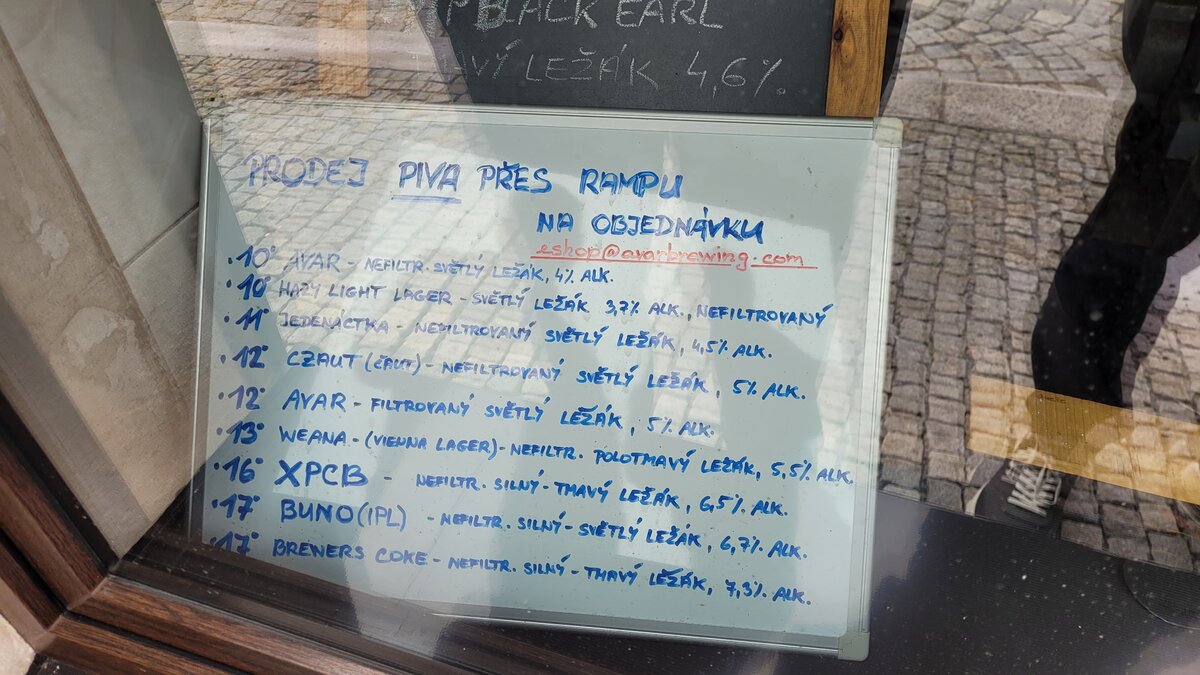 BLACK EARL
LEŽÁK 4,6%.
PRODEJ PIVA PŘES RAMPU
NA OBJEDNÁVKU
eshop@avarbrewing.com
·10° AVAR - NEFILTR. SVĚTLÝ LEŽÁK, 4% ALK.
·10° HAZY LIGHT LAGER - SVĚTLÝ LEŽÁK 3,7% ALK., NEFILTROVANÝ
·11° JEDENÁCTKA - NEFILTROVANÝ SVĚTLÝ LEŽÁK, 4,5% ALK.
·12° CZAUT (ČAUT) - NEFILTROVANÝ SVĚTLÝ LEŽÁK, 5% ALK.
·12° AVAR - FILTROVANÝ SVĚTLÝ LEŽÁK, 5% ALK.
·13° WEANA - (VIENNA LAGER) - NEFILTR. POLOTMAVÝ LEŽÁK, 5,5% ALK.
·16° XPCB - NEFILTR. SILNÝ - TMAVÝ LEŽÁK, 6,5% ALK.
·17° BUNO (IPL) - NEFILTR. SILNÝ - SVĚTLÝ LEŽÁK, 6,7% ALK.
·17° BREWERS COKE - NEFILTR. SILNÝ - TMAVÝ LEŽÁK, 7,3% ALK.